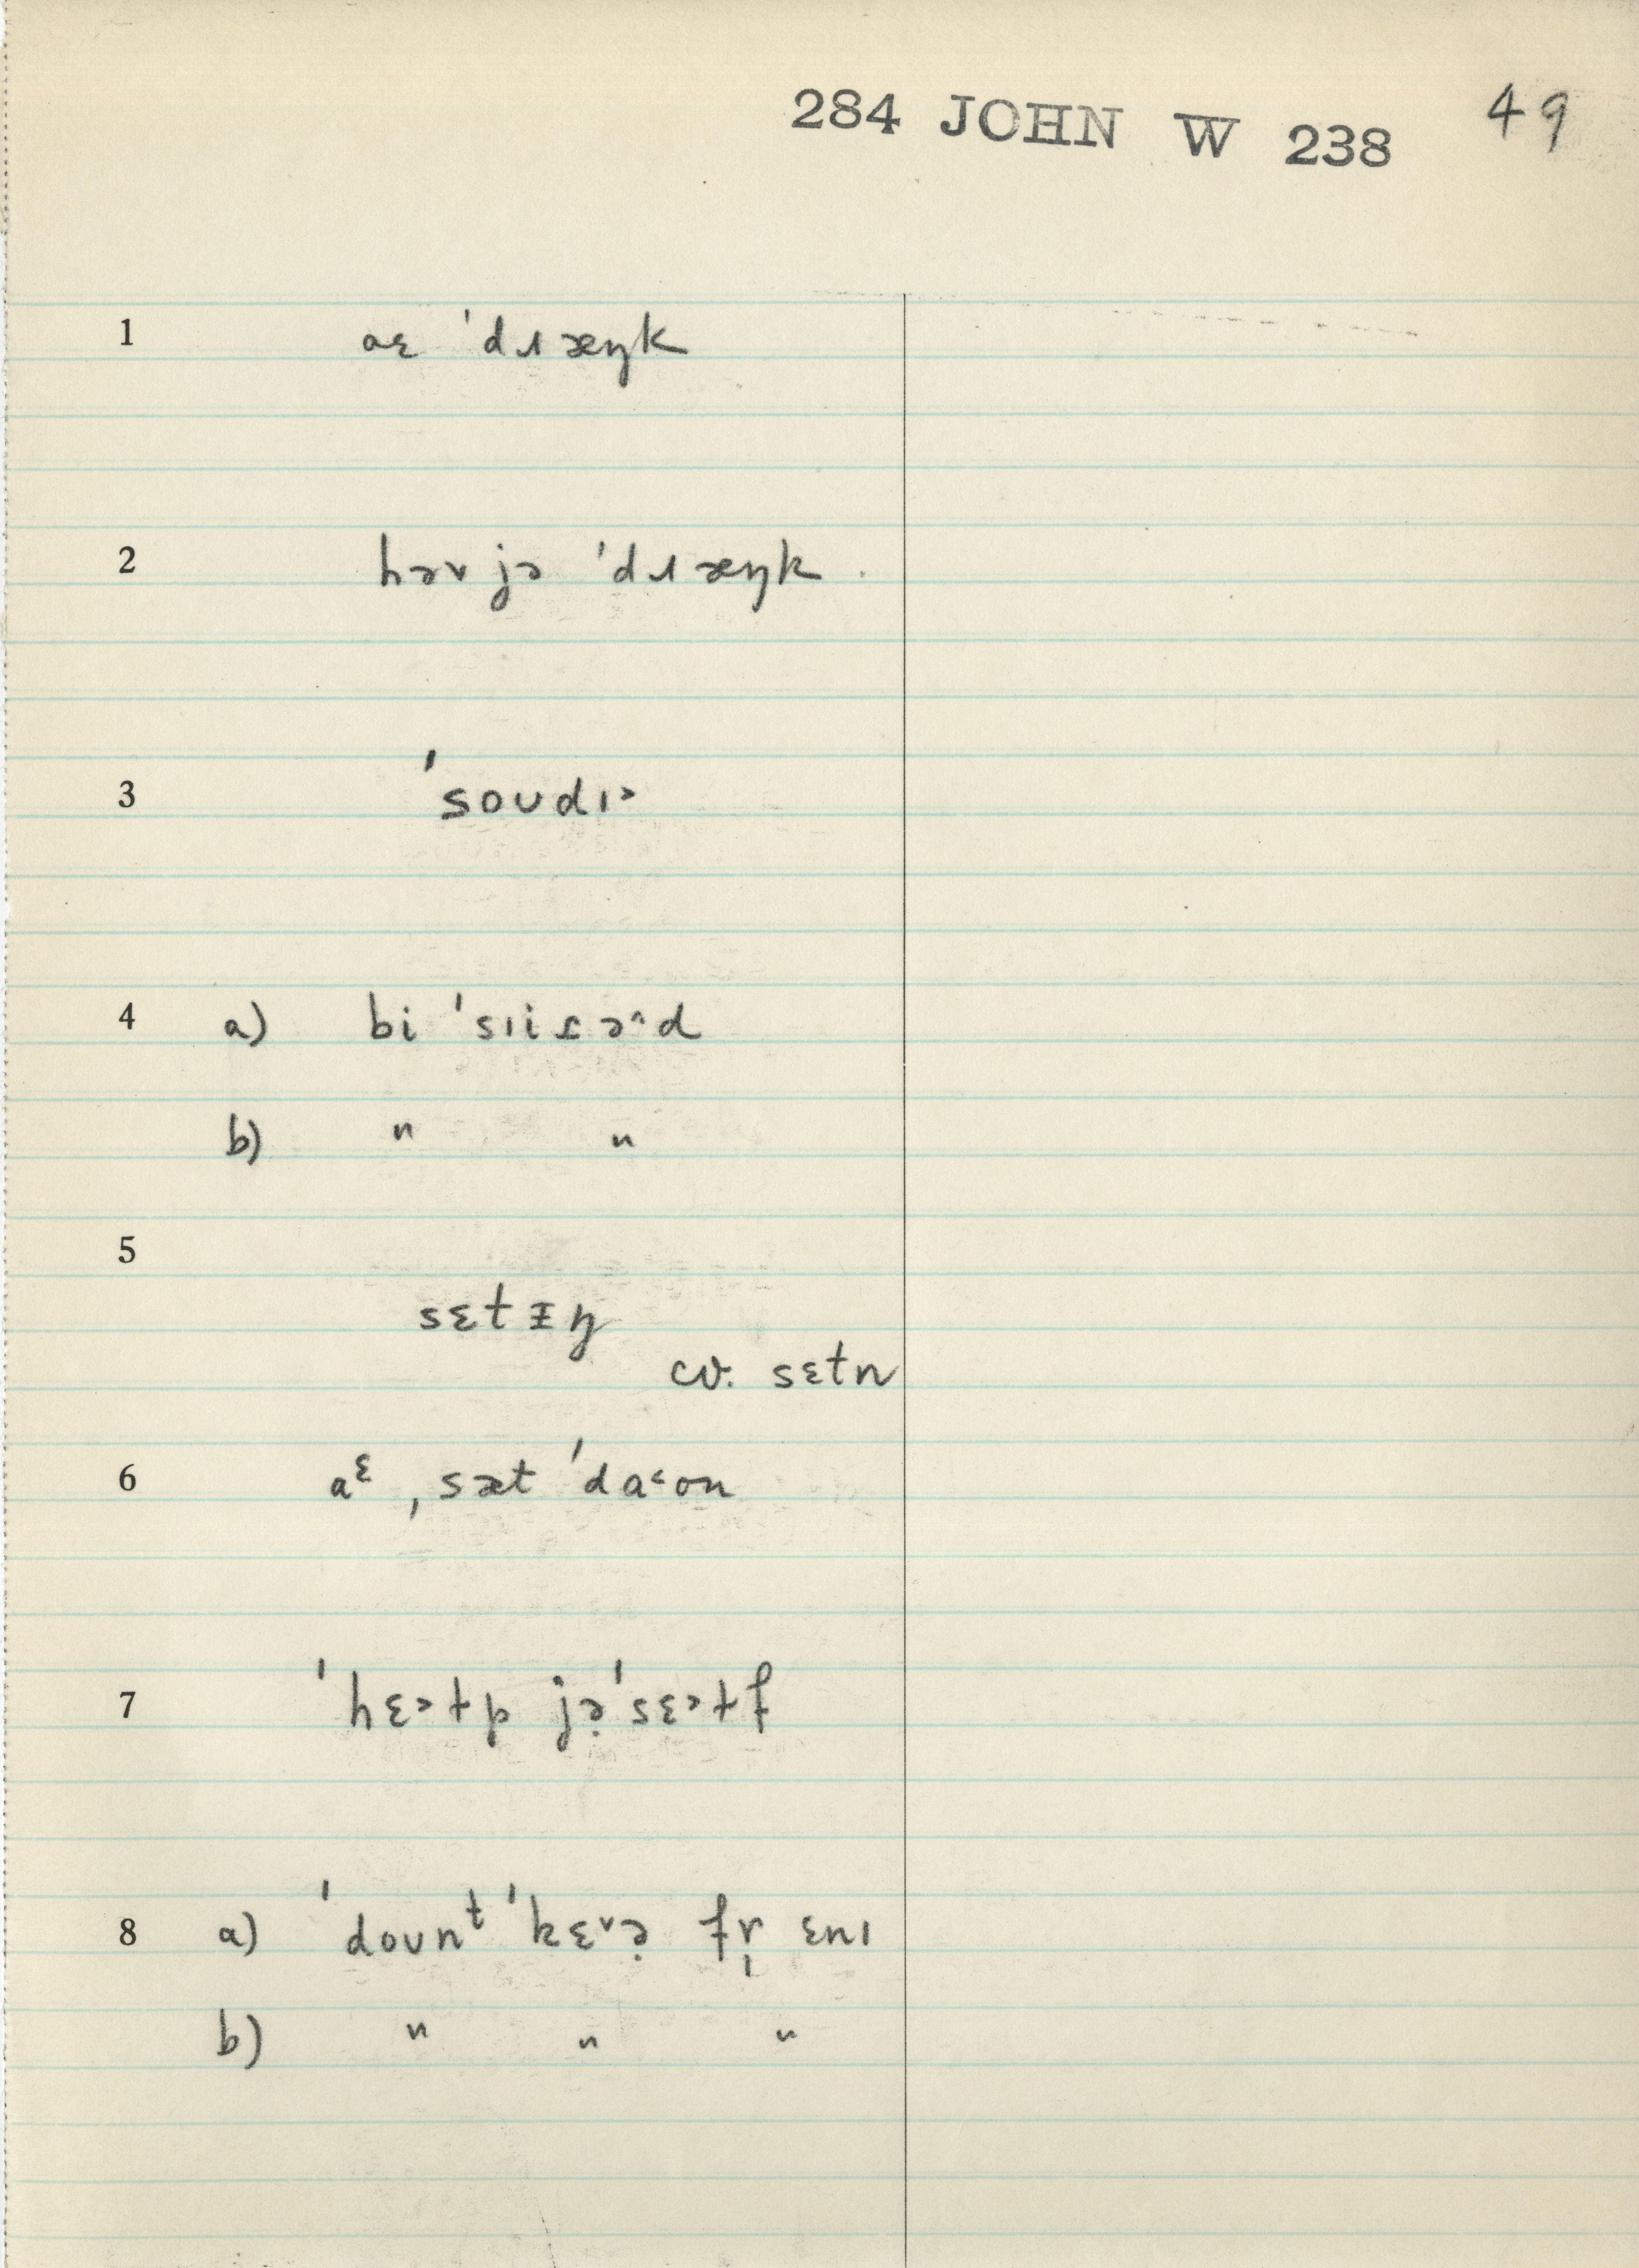 284 JOHN W 238 49
1 aɛ ˈdɹæŋk
2 həv jə ˈdɹæŋk
3 ˈsoʊdɪ˃
4 a) bi ˈsɪiɾə^d
b) " "
5
sɛtᵻŋ
cv. sɛtn
6 aᵋ ˌsæt ˈda˂ʊn
7 ˈhɛ˃ɫp jə̣ ˈsɛ˃ɫf
8 a) ˈdoʊnᵗ ˈkɛ˅ə̣ fr̩ ɛnɪ
b) " " "